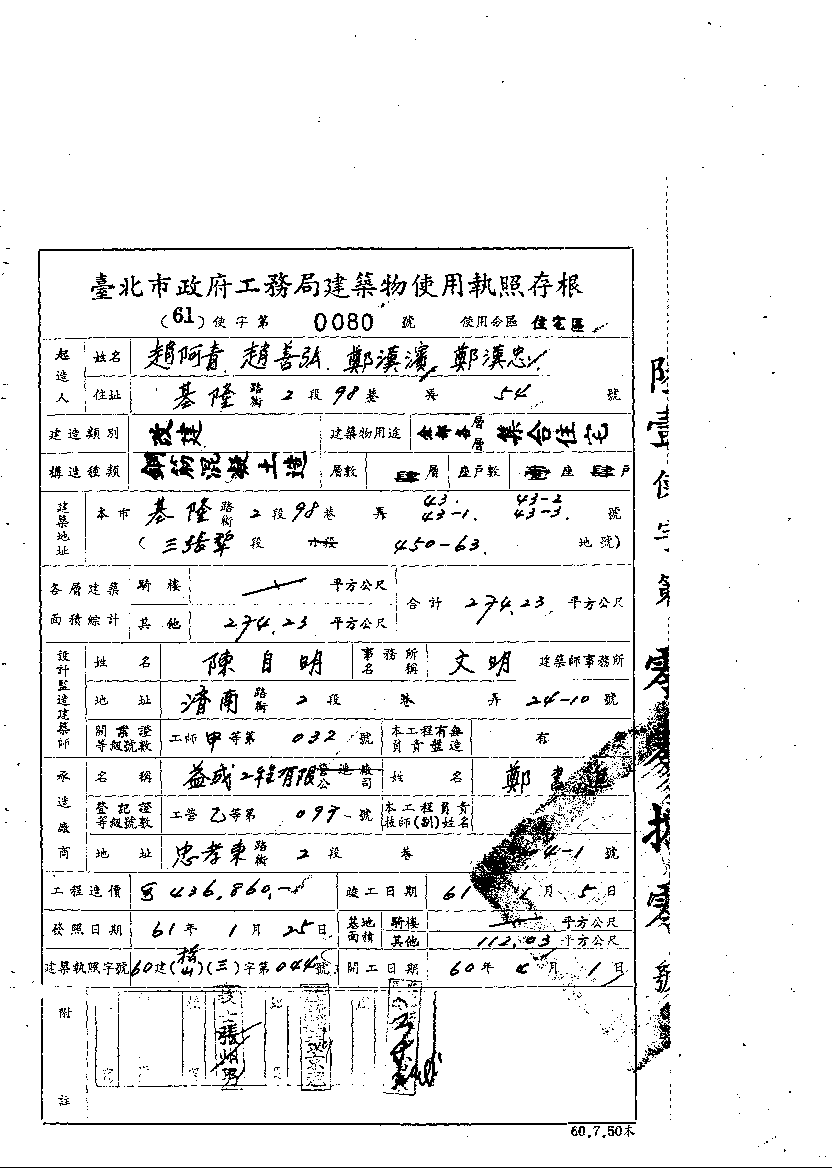 臺北市政府工務局建築物使用執照存根
(61)使字第 0080 號 使用分區 住宅區
起造人 姓名 趙阿青 趙善弘 鄭漢濱 鄭漢忠
住址 基隆 路街 2 段 98 巷 弄 54 號
建造類別 改建 建築物用途 全部各層層 集合住宅
構造種類 鋼筋混凝土造 層數 肆層 座戶數 壹座 肆戶
建築地址 本市 基隆 路街 2 段 98 巷 弄 43. 43-1. 43-2 43-3. 號
(三張犂 段 小段 450-63. 地號)
各層建築面積綜計 騎樓 平方公尺 合計 274.23 平方公尺
其他 274.23 平方公尺
設計監造建築師 姓名 陳自明 事務所名稱 文明 建築師事務所
地址 濟南 路街 2 段 巷 弄 24-10 號
開業證等級號數 工師 甲 等第 032 號 本工程有無負責監造 有
承造廠商 名稱 益成工程有限營造廠公司 姓名 鄭書
登記證等級號數 工營 乙 等第 097 號 本工程負責技師(副)姓名
地址 忠孝東 路街 2 段 巷 4-1 號
工程造價 436,860.- 竣工日期 61 1 月 5 日
發照日期 61 年 1 月 25 日 基地面積 騎樓 平方公尺
其他 112.03 平方公尺
建築執照字號 60 建(松山)(三)字第 044 號 開工日期 60 年 月 1 日
附註
60.7.50本
陸壹使字第零零捌零號